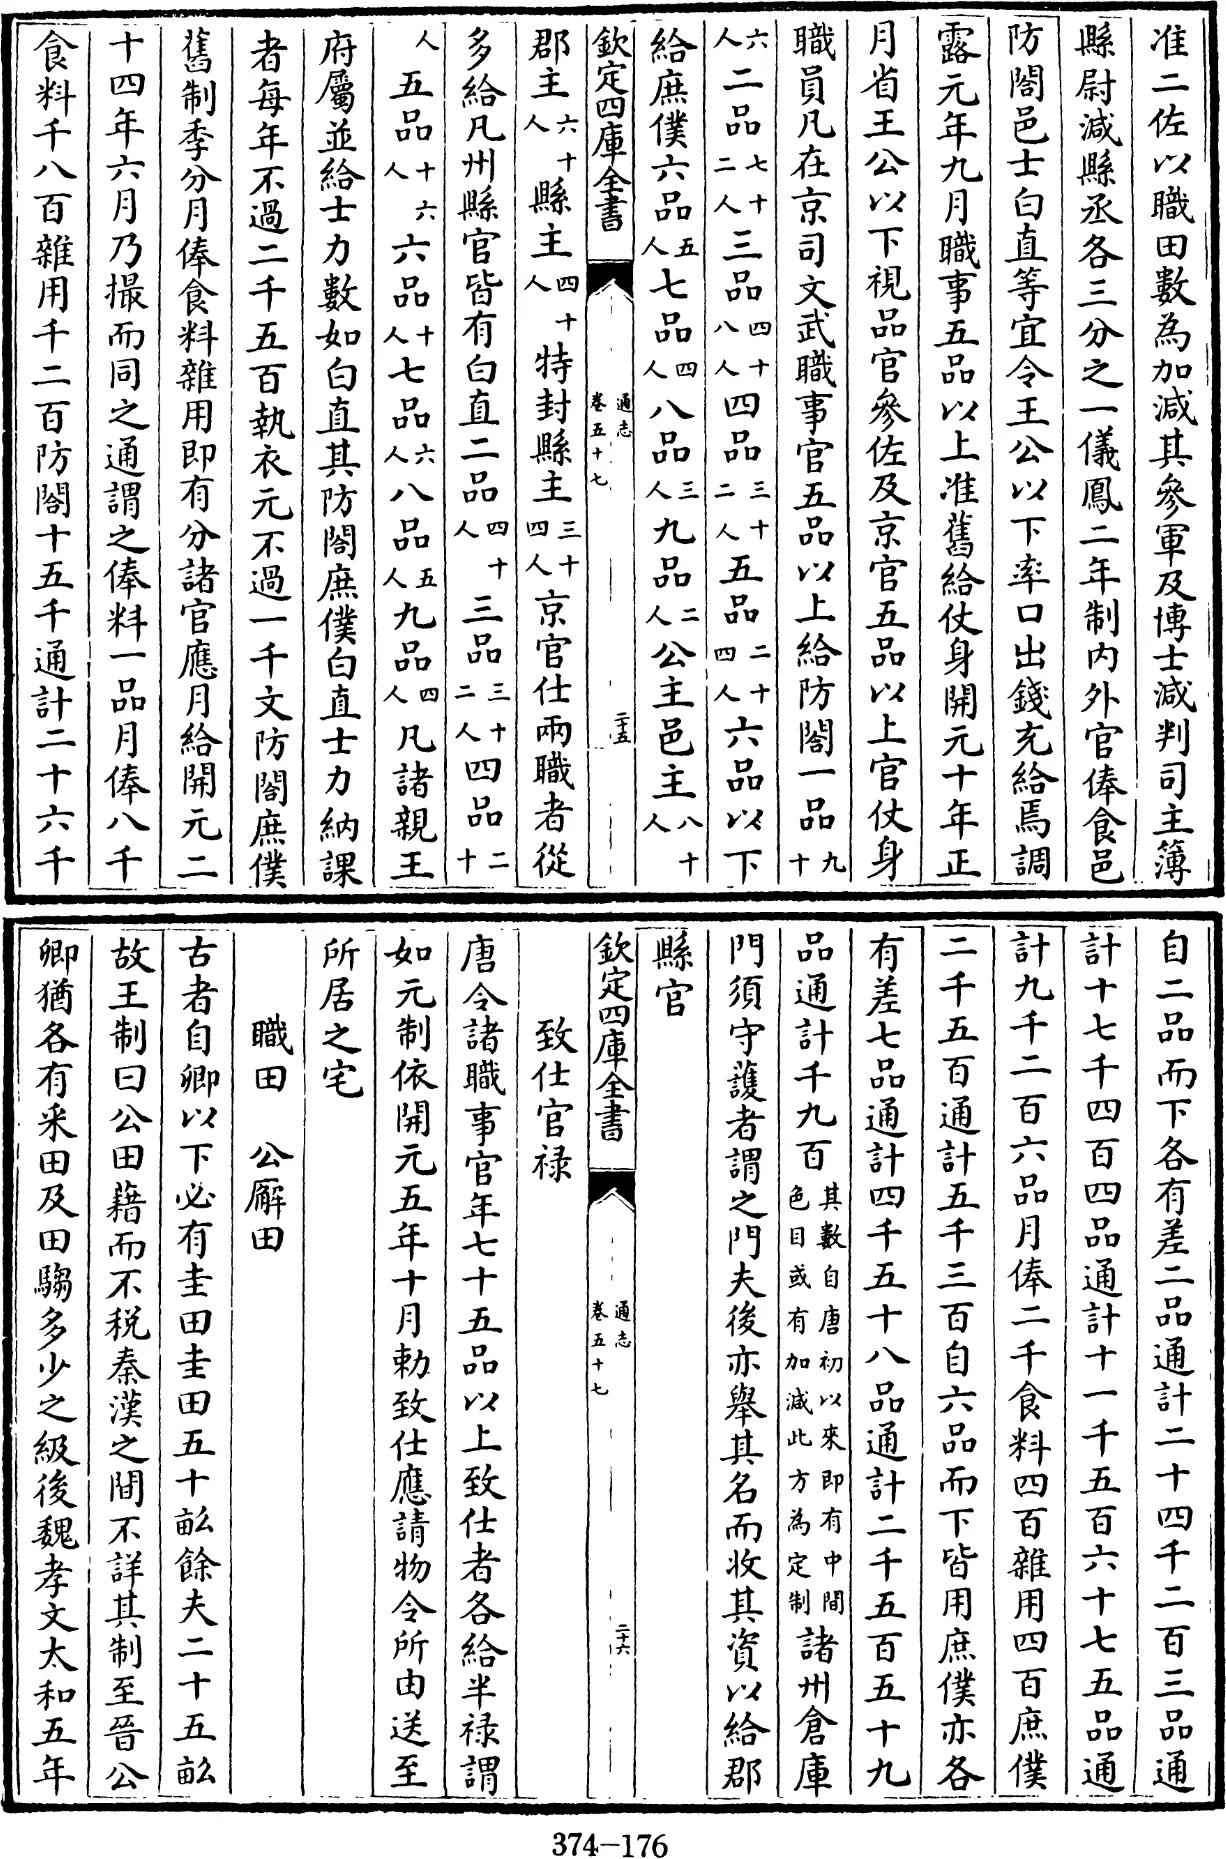 准二佐以職田數為加減其參軍及博士減判司主簿
縣尉減縣丞各三分之一儀鳳二年制内外官俸食邑
防閤邑士白直等宜令王公以下率口出錢充給焉調
露元年九月職事五品以上准舊給仗身開元十年正
月省王公以下視品官參佐及京官五品以上官仗身
職員凡在京司文武職事官五品以上給防閤一品九十
六人二品七十二人三品四十八人四品三十二人五品二十四人六品以下
給庶僕六品五人七品四人八品三人九品二人公主邑主八十
欽定四庫全書
通志
卷五十七
二十五
郡主六十人縣主四十人特封縣主三十四人京官仕兩職者從
多給凡州縣官皆有白直二品四十人三品三十二人四品二十
人五品十六人六品十人七品六人八品五人九品四人凡諸親王
府屬並給士力數如白直其防閤庶僕白直士力納課
者每年不過二千五百執衣元不過一千文防閤庶僕
舊制季分月俸食料雜用即有分諸官應月給開元二
十四年六月乃撮而同之通謂之俸料一品月俸八千
食料千八百雜用千二百防閤十五千通計二十六千
自二品而下各有差二品通計二十四千二百三品通
計十七千四百四品通計十一千五百六十七五品通
計九千二百六品月俸二千食料四百雜用四百庶僕
二千五百通計五千三百自六品而下皆用庶僕亦各
有差七品通計四千五十八品通計二千五百五十九
品通計千九百其數自唐初以來即有中間色目或有加減此方為定制諸州倉庫
門須守護者謂之門夫後亦舉其名而收其資以給郡
縣官
欽定四庫全書
通志
卷五十七
二十六
致仕官禄
唐令諸職事官年七十五品以上致仕者各給半禄謂
如元制依開元五年十月勅致仕應請物令所由送至
所居之宅
職田 公廨田
古者自卿以下必有圭田圭田五十畝餘夫二十五畝
故王制曰公田藉而不税秦漢之間不詳其制至晉公
卿猶各有釆田及田騶多少之級後魏孝文太和五年
374-176